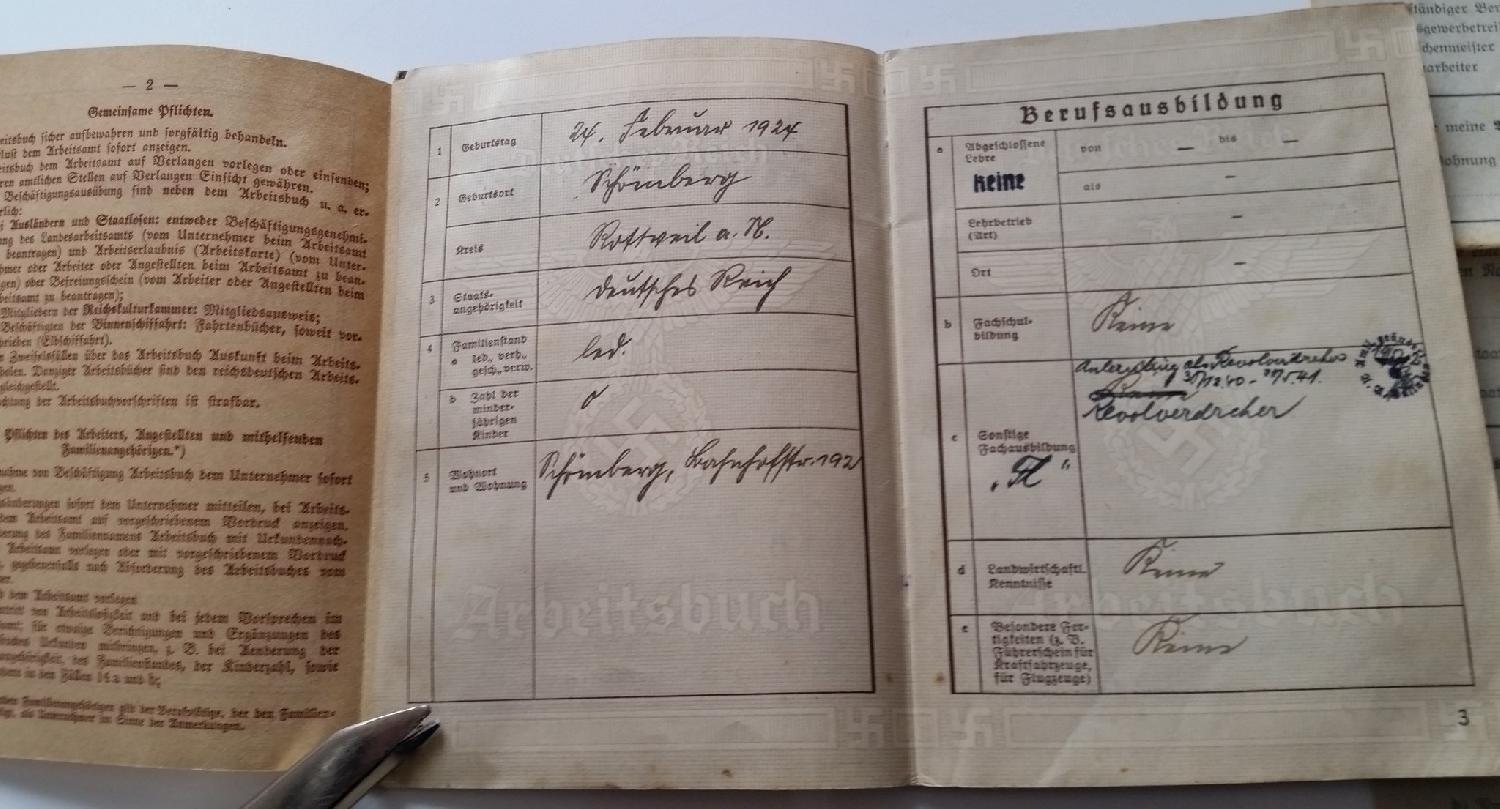 — 2 —
Gemeinsame Pflichten.
eitsbuch sicher aufbewahren und sorgfältig behandeln.
lust dem Arbeitsamt sofort anzeigen.
eitsbuch dem Arbeitsamt auf Verlangen vorlegen oder einsenden;
ren amtlichen Stellen auf Verlangen Einsicht gewähren.
Beschäftigungsausübung sind neben dem Arbeitsbuch u. a. er-
rlich:
i Ausländern und Staatlosen: entweder Beschäftigungsgenehmi-
ng des Landesarbeitsamts (vom Unternehmer beim Arbeitsamt
beantragen) und Arbeitserlaubnis (Arbeitskarte) (vom Unter-
hmer oder Arbeiter oder Angestellten beim Arbeitsamt zu bean-
gen) oder Befreiungsschein (vom Arbeiter oder Angestellten beim
beitsamt zu beantragen);
Mitgliedern der Reichskulturkammer: Mitgliedsausweis;
Beschäftigten der Binnenschiffahrt: Fahrtenbücher, soweit vor-
rieben (Elbschiffahrt).
n Zweifelsfällen über das Arbeitsbuch Auskunft beim Arbeits-
holen. Danziger Arbeitsbücher sind den reichsdeutschen Arbeits-
gleichgestellt.
chtung der Arbeitsbuchvorschriften ist strafbar.
Pflichten des Arbeiters, Angestellten und mithelfenden
Familienangehörigen.*)
nahme von Beschäftigung Arbeitsbuch dem Unternehmer sofort
gen.
änderungen sofort dem Unternehmer mitteilen, bei Arbeits-
dem Arbeitsamt auf vorgeschriebenem Vordruck anzeigen.
erung des Familiennamens Arbeitsbuch mit
Arbeitsamt vorlegen oder mit vorgeschriebenem Vordruck
gegebenenfalls nach Abforderung des Arbeitsbuches vom
dem Arbeitsamt vorlegen
und bei jedem Vorsprechen im
amt; für etwaige Berichtigungen und Ergänzungen des
Urkunden mitbringen, z. B. bei Aenderung der
angehörigkeit, des Familienstandes, der Kinderzahl, sowie
in den Fällen
1 Geburtstag 24. Februar 1924
2 Geburtsort Schömberg
Kreis Rottweil a. N.
3 Staats-
angehörigkeit deutsches Reich
4 Familienstand
a led., verh.,
gesch., verw. led.
b Zahl der
minder-
jährigen
Kinder 0
5 Wohnort
und Wohnung Schömberg, Bahnhofstr. 192
Arbeitsbuch
Berufsausbildung
a Abgeschlossene
Lehre von — bis —
Keine als —
Lehrbetrieb
(Art) —
Ort —
b Fachschul-
bildung Keine
Anlernling als Revolverdreher
c Sonstige
Fachausbildung Revolverdreher
d Landwirtschaftl.
Kenntnisse Keine
e Besondere Fer-
tigkeiten (z. B.
Führerschein für
Kraftfahrzeuge,
für Flugzeuge) Keine
Arbeitsbuch
3
tändiger Ber
gewerbetrei
chenmeister
arbeiter
meine
ohnung